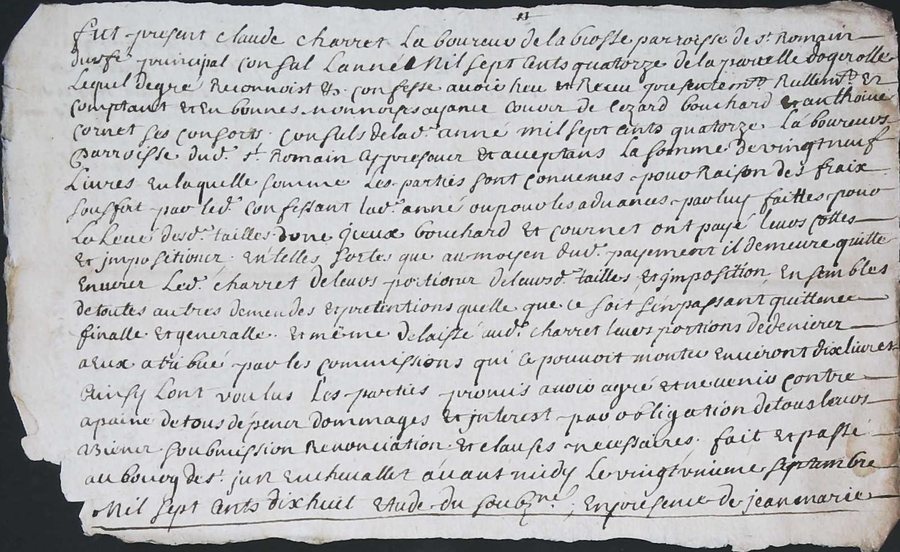 fut present claude charret Laboureur de la brosse parroisse de st Romain
durfé principal consul Lannéé Mil sept cents quatorze de la parcelle dogerolle
Lequel de gré Reconnoist & confesse avoir heu et Receu presentemt Rullemt Et
Comptant et En bonnes monnoies ayance couvor de Cezard bouchard et anthoine
Cornet ses consorts consuls de lad. anné mil sept cents quatorze Laboureurs
Parroisse dud. st Romain appresour et aceptans La somme de vingt neuf
Livres En laquelle somme Les parties sont convenues pour Raison des fraix
souffert par led. confessant lad. anné ou pour les advances par luy faittes pour
La Levé desd. tailles donc yceux bouchard et cournet ont payé leurs cottes
et jmpositions En telles sortes que au moyen dud. payement il demeure quitte
Envers Led. charret de leurs portions de leursd. tailles et jmposition Ensembles
de toutes autres demendes et pretentions quelle que ce soit s'en passant quittence
finalle et generalle et même delaissé aud. charret leurs portions de deniers
a Eux atribué par les commissions qui ce pouvoit monter Environt dix livres
Ainsy Lont voulus Les parties promis avoir agré et ne venir contre
a paine de tous depens dommages et jnterest par obligation de tous leurs
Biens soubmission Renonciation et clauses necessaires fait et passé
au bourg de st just En chevallet avant midy Le vingt neuvieme septembre
Mil sept cents dix huit Etude du soubzné, En presence de jean marie